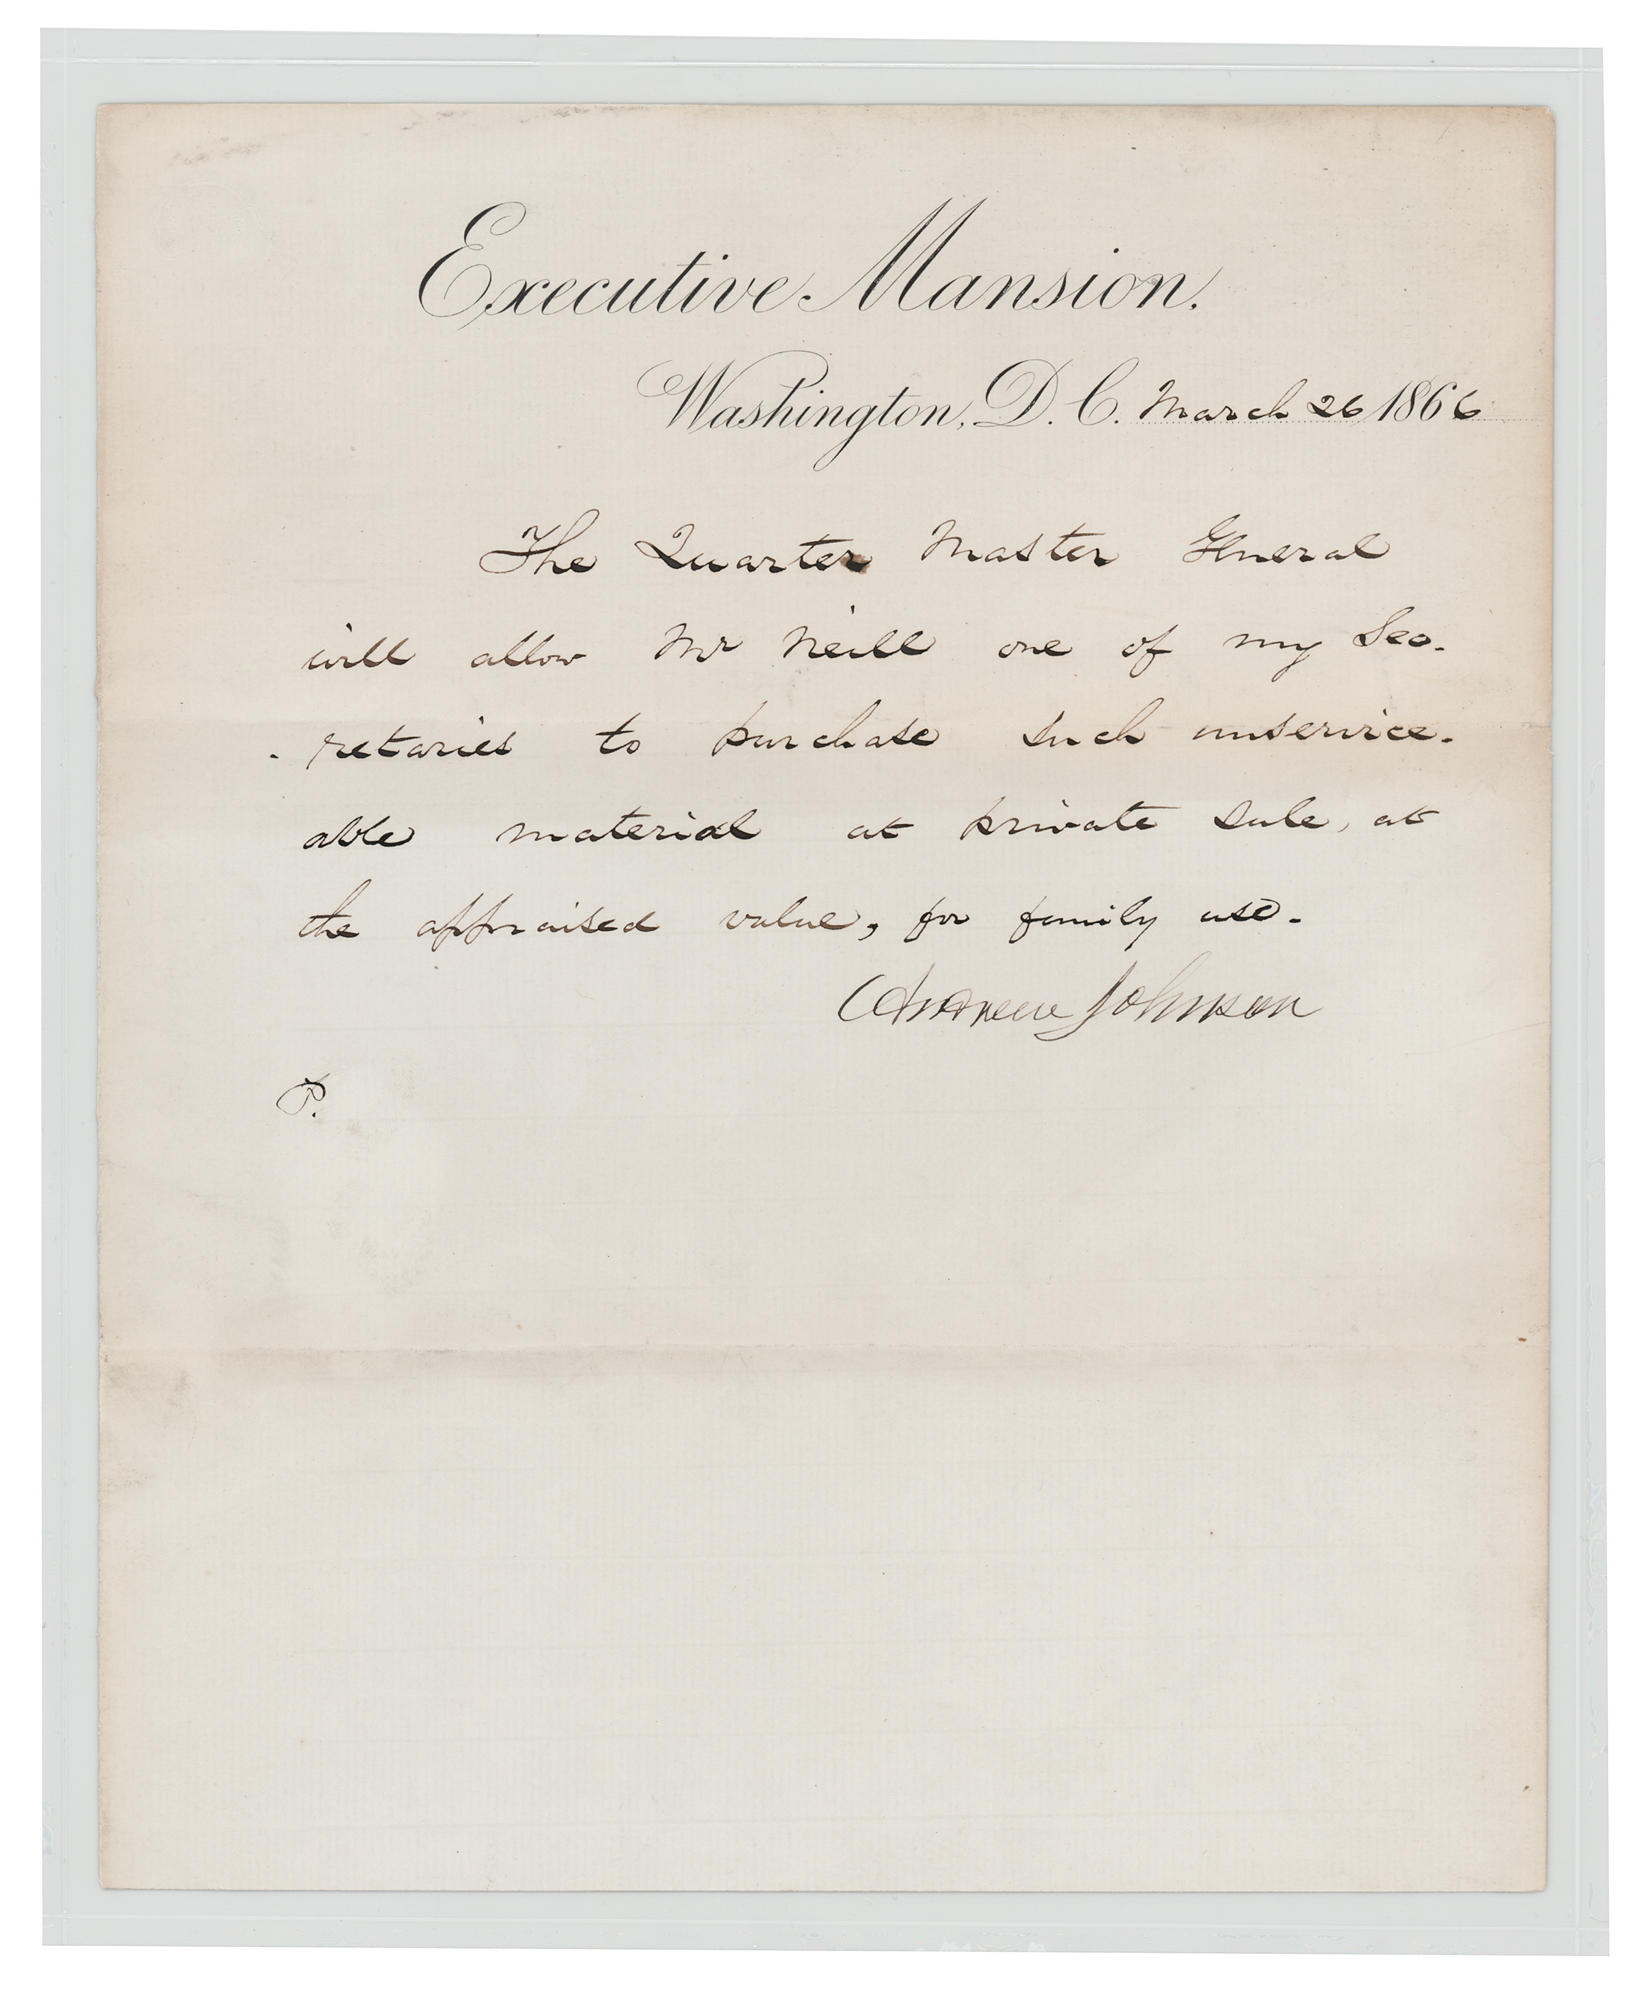 Executive Mansion.
Washington, D. C. March 26 1866
The Quarter Master General
will allow Mr Neill one of my Sec-
- retaries to purchase such unservice-
able material at private sale, at
the appraised value, for family use.
Andrew Johnson
P.